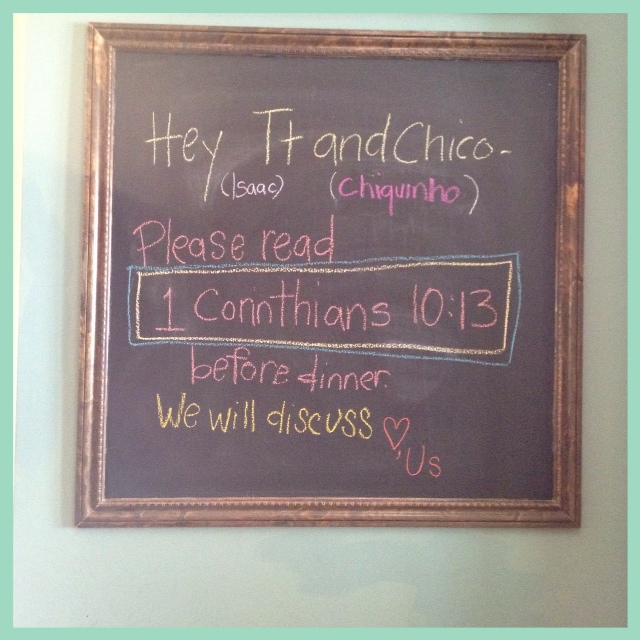 Hey Tt and Chico-
(Isaac) (Chiquinho)
Please read
1 Corinthians 10:13
before dinner.
We will discuss
♡, Us